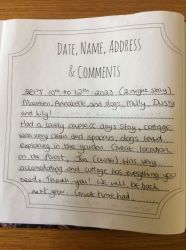 DATE, NAME, ADDRESS
& COMMENTS
SEPT 10th to 12th 2023 (2 night stay)
Maureen, Annabelle and dogs, Milly, Dusty
and Lily!
Had a lovely stay. Cottage
was very clean and spacious, dogs loved
exploring in the garden. Great location
on the front. Jan (owner) was very
accomodating and cottage has everything you
need. Thank you! We will be back
next year. Great time had.